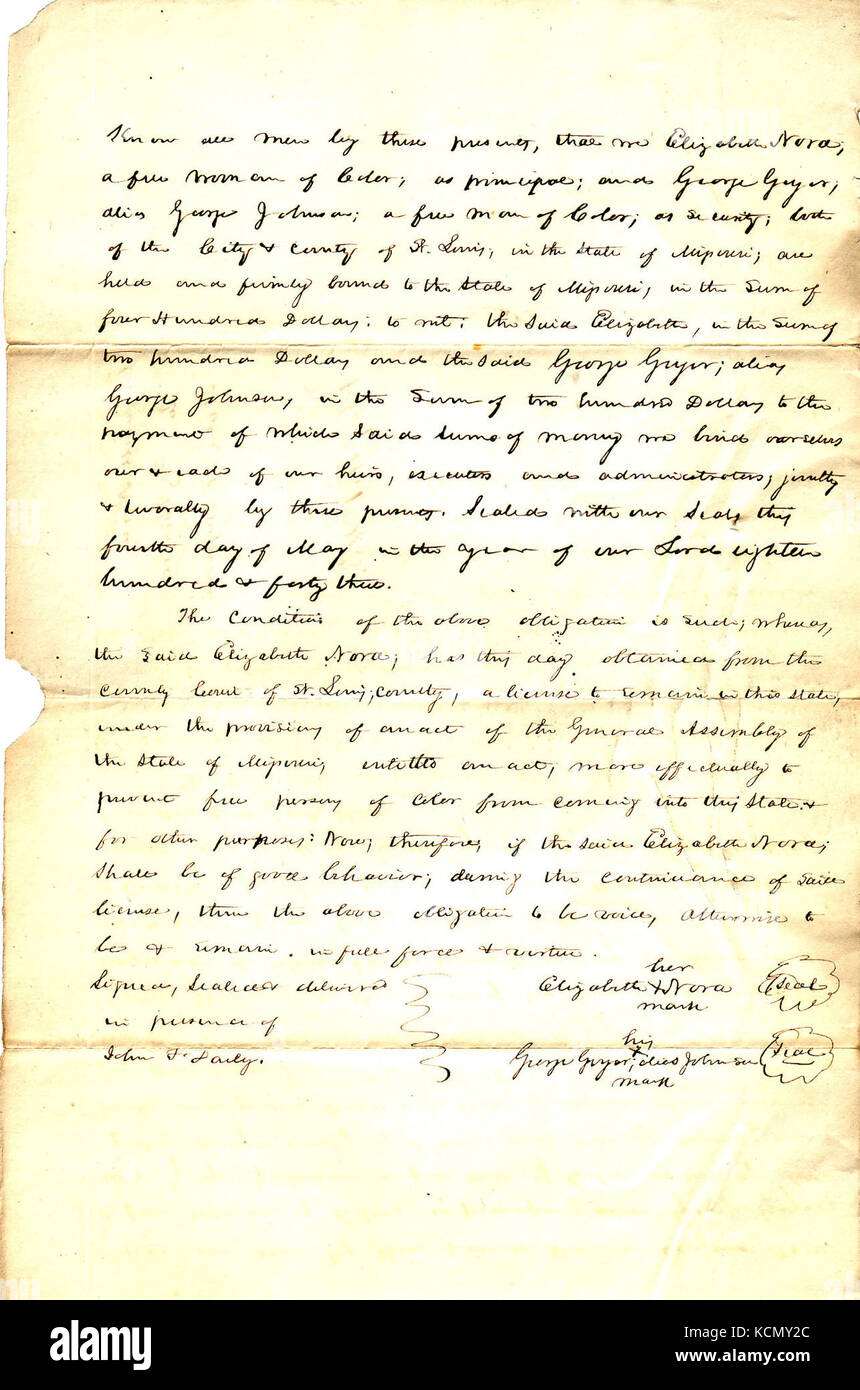 Know all men by these presents, that we Elizabeth Nora,
a free woman of Color; as principal; and George Geyer;
alias George Johnson; a free man of Color; as security; both
of the City & County of St. Louis, in the State of Missouri; are
held and firmly bound to the State of Missouri, in the Sum of
four Hundred Dollars: to wit: the said Elizabeth, in the Sum of
two hundred Dollars and the said George Geyer; alias
George Johnson, in the Sum of two hundred Dollars to the
payment of which said sums of money we bind ourselves
our & each of our heirs, executors and administrators, jointly
& severally by these presents. Sealed with our Seals this
fourth day of May in the year of our Lord eighteen
hundred & forty three.
The Condition of the above obligation is such; whereas,
the said Elizabeth Nora; has this day obtained from the
County Court of St. Louis, County, a license to remain in this State,
under the provisions of an act of the General Assembly of
the State of Missouri, entitled an act, more effectually to
prevent free persons of Color from coming into this State &
for other purposes: Now, therefore, if the said Elizabeth Nora;
shall be of good behavior; during the continuance of said
license, then the above obligation to be void, otherwise to
be & remain in full force & virtue.
Signed, Sealed & delivered
in presence of
John
her
Elizabeth X Nora (Seal)
mark
his
George Geyer, X alias Johnson (Seal)
mark
alamy
Image ID: KCMY2C
www.alamy.com